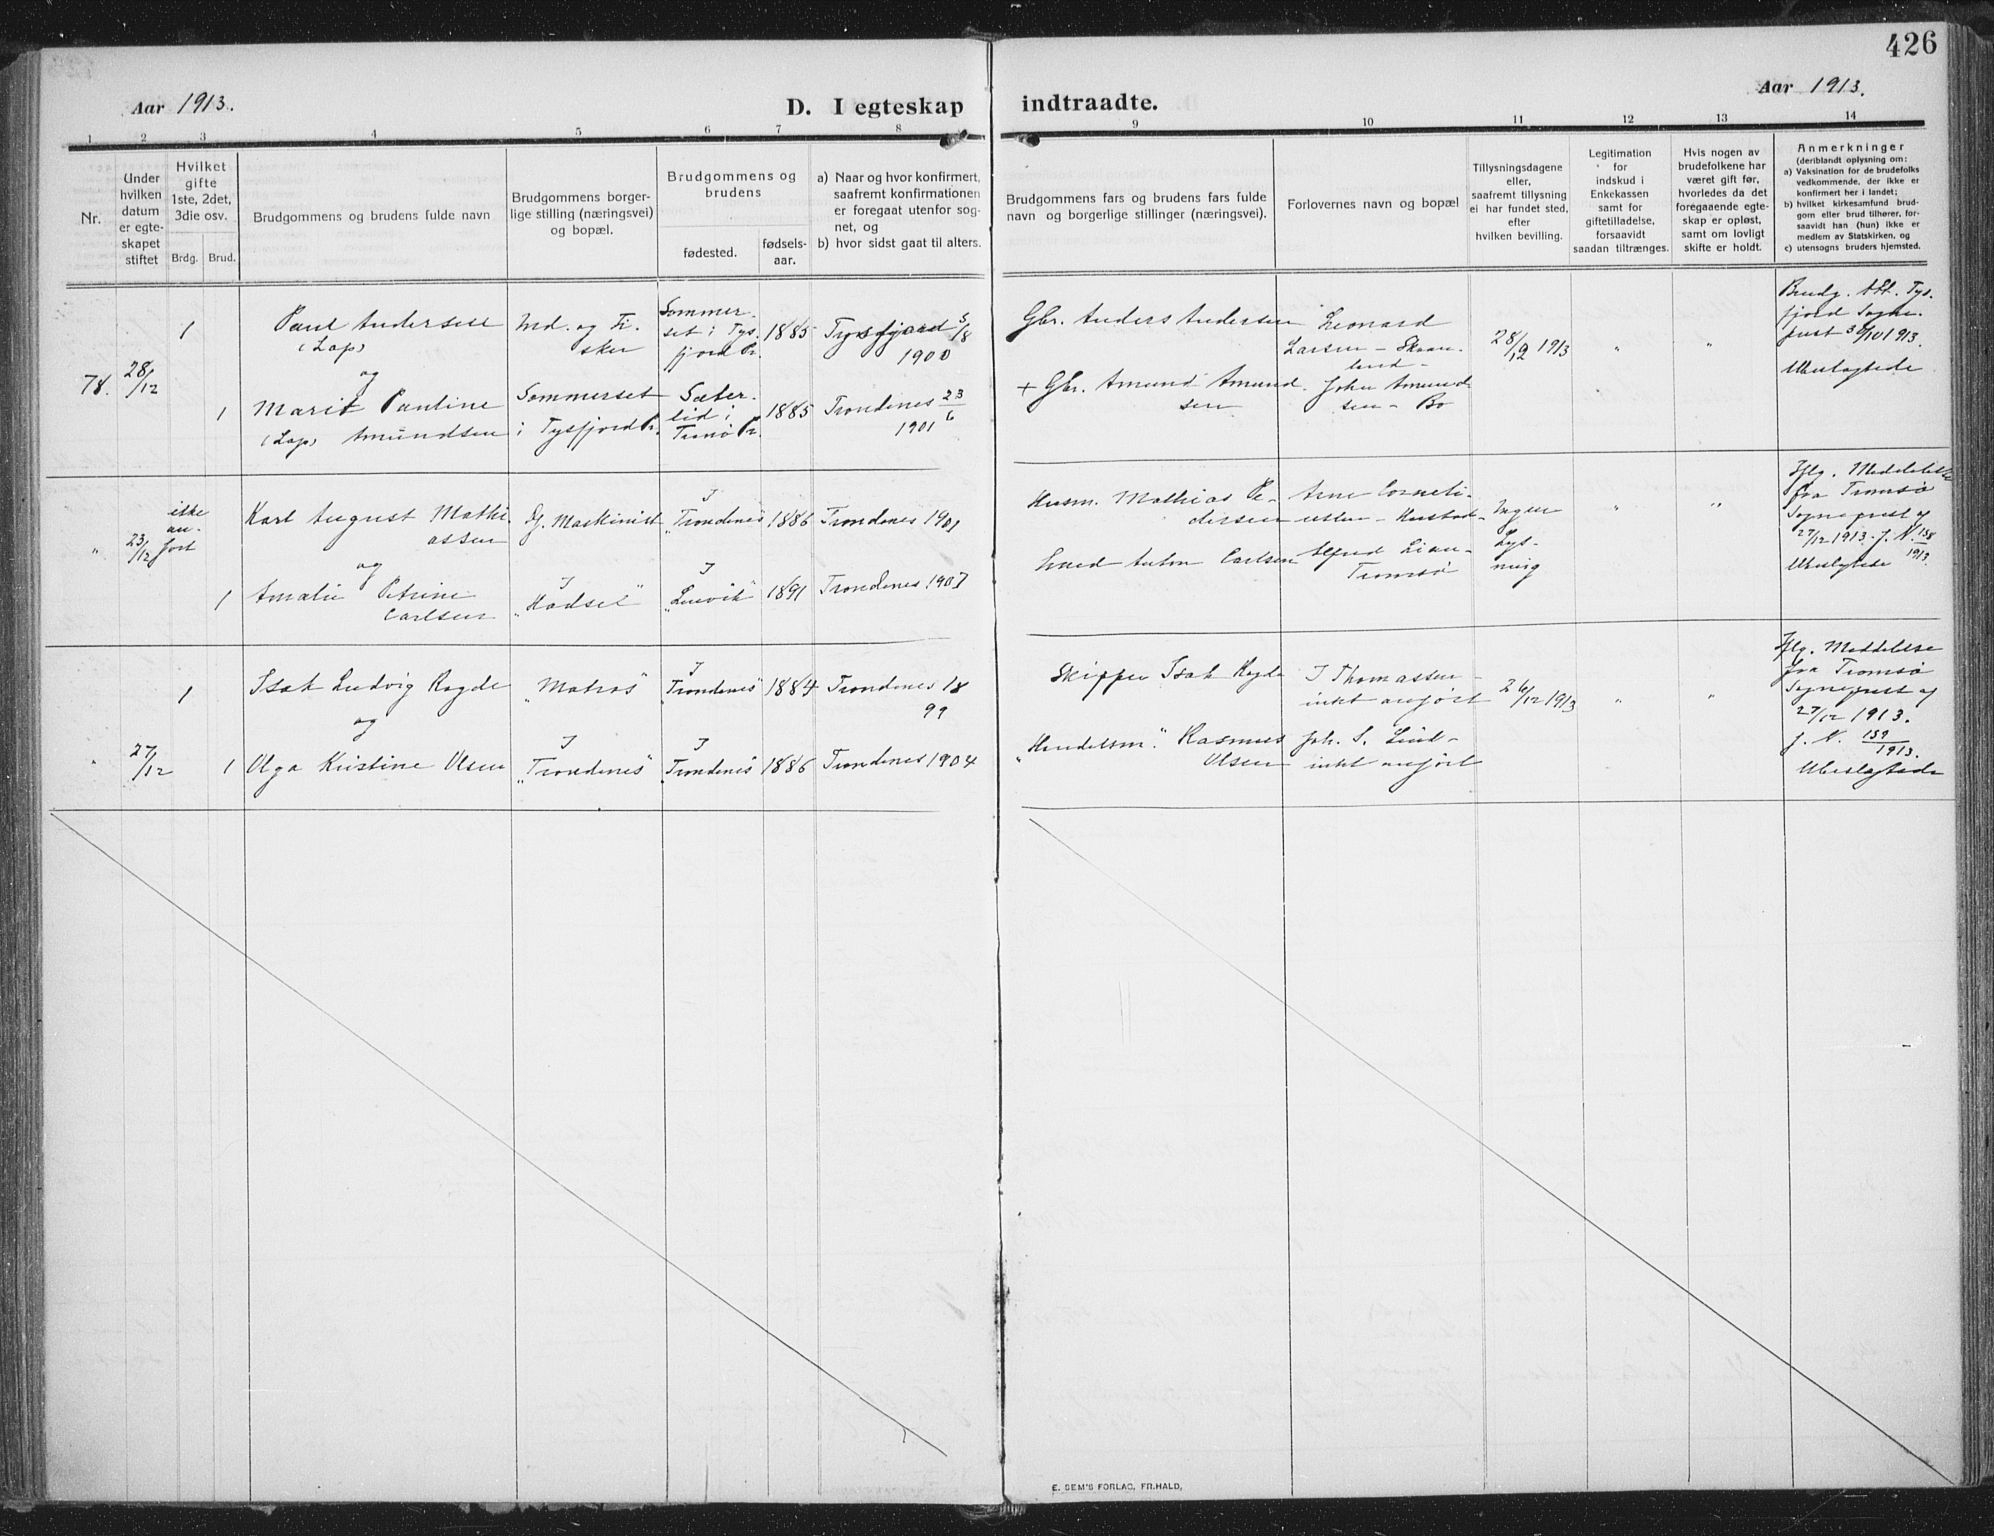 426
Aar 1913.
D. I egteskap indtraadte.
Aar 1913.
1 2 3 4 5 6 7 8 9 10 11 12 13 14
Nr.
Under
hvilken
datum
er egte-
skapet
stiftet
Hvilket
gifte
1ste, 2det,
3die osv.
Brdg. Brud.
Brudgommens og brudens fulde navn
Brudgommens borger-
lige stilling (næringsvei)
og bopæl.
Brudgommens og
brudens
fødested.
fødsels-
aar.
a) Naar og hvor konfirmert,
saafremt konfirmationen
er foregaat utenfor sog-
net, og
b) hvor sidst gaat til alters.
Brudgommens fars og brudens fars fulde
navn og borgerlige stillinger (næringsvei).
Forlovernes navn og bopæl
Tillysningsdagene
eller,
saafremt tillysning
ei har fundet sted,
efter
hvilken bevilling.
Legitimation
for
indskud i
Enkekassen
samt for
giftetilladelse,
forsaavidt
saadan tiltrænges.
Hvis nogen av
brudefolkene har
været gift før,
hvorledes da det
foregaaende egte-
skap er opløst,
samt om lovligt
skifte er holdt.
Anmerkninger
(deriblandt oplysning om:
a) Vaksination for de brudefolks
vedkommende, der ikke er
konfirmert her i landet;
b) hvilket kirkesamfund brud-
gom eller brud tilhører, for-
saavidt han (hun) ikke er
medlem av Statskirken, og
c) utensogns bruders hjemsted.
78.
28/12
1
Paul Andersen
(Lap)
og
1
Marit Pauline
(Lap) Amundsen
Ind. og Fi-
sker
Sommerset
i Tysfjord Pr.
Sommer-
set i Tys-
fjord Pr.
Sæter-
lid i
Tranø Pr.
1885
1885
5/8
1900
Trondenes 23/6
1901
Gbr. Anders Andersen
+ Gbr. Amund Amund-
sen
Leonard
Larsen - Skaan-
land -
John Amund-
sen - Bo
28/12 1913
"
"
Brudg. Att. Tys-
fjord Sogne-
prest 1913.
Ubeslægtede
"
23/12
ikke
an-
ført
Karl August Mathi-
assen
og
1
Amalie Petrine
Carlsen
Fg. Maskinist
I
"Hadsel"
I
"Trondenes"
I
1886
1891
Trondenes 1901
Trondenes 1907
Husm. Mathias Pe-
dersen
Anton Carlsen
Arne Corneli-
ussen - Harstad -
Alfred Lian -
Tromsø
Ingen
Lys-
ning
"
"
Iflg. Meddelelse
fra Tromsø
Sogneprest af
27/12 1913. J. N. 158/1913.
Ubeslegtede
"
27/12
1
Isak Ludvig Ragde
og
1
Olga Kristine Olsen
"Matros"
I
"Trondenes"
I
"Trondenes"
I
"Trondenes"
1884
1886
Trondenes 18
99
Trondenes 1904
Skipper Isak Ragde
"Handelsm." Rasmus
Olsen
J Thomassen -
inkt anført
Joh. S. Lind -
inkt anført
26/12 1913
"
"
Iflg. Meddelelse
fra Tromsø
Sogneprest af
27/12 1913.
J. N. 159/1913.
Ubeslegtede
E. SEM'S FORLAG, FR.HALD,